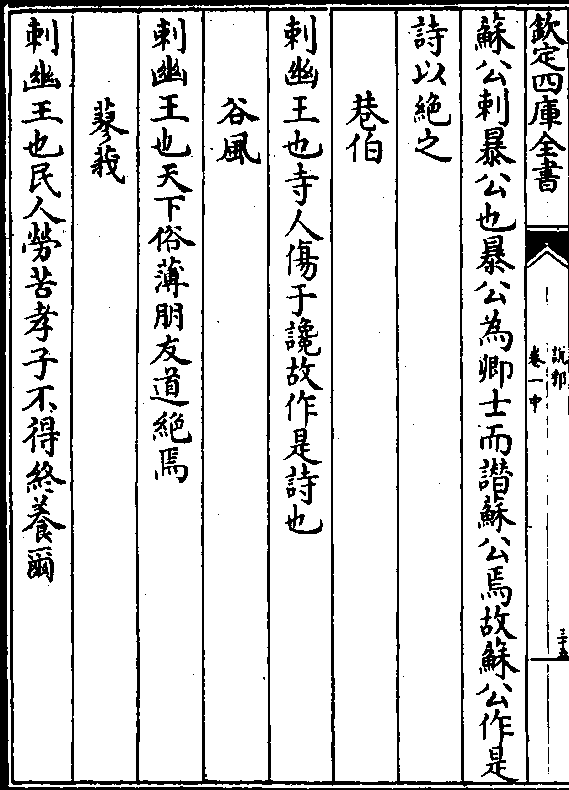 欽定四庫全書
說郛
卷一中
三十五
蘇公刺暴公也暴公為卿士而譖蘇公焉故蘇公作是
詩以絕之
巷伯
刺幽王也寺人傷于讒故作是詩也
谷風
刺幽王也天下俗薄朋友道絕焉
蓼莪
刺幽王也民人勞苦孝子不得終養爾